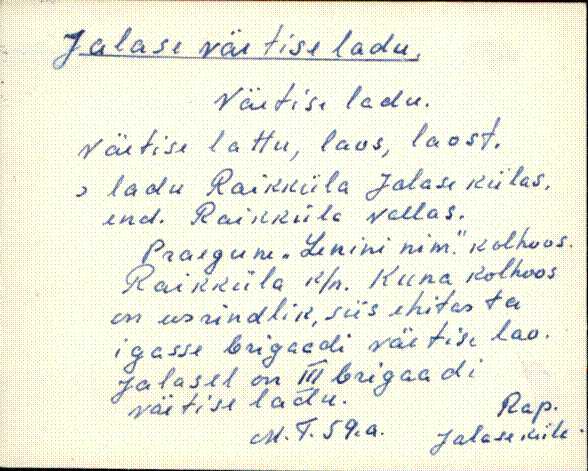 Jalase väetise ladu.
Väetise ladu.
Väetise lattu, laos, laost.
ladu Raikküla Jalase külas,
end. Raikküla vallas.
Praegune "Lenini nim." kolhoos.
Raikküla k/n. Kuna kolhoos
on eesrindlik, siis ehitas ta
igasse brigaadi väetise lao.
Jalasel on III brigaadi
väetise ladu.
M. T. 59.a.
Rap.
Jalase küla.